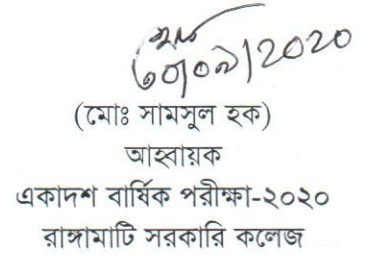 ৩০/০৯/2020
(মোঃ সামসুল হক)
আহ্বায়ক
একাদশ বার্ষিক পরীক্ষা-২০২০
রাঙ্গামাটি সরকারি কলেজ